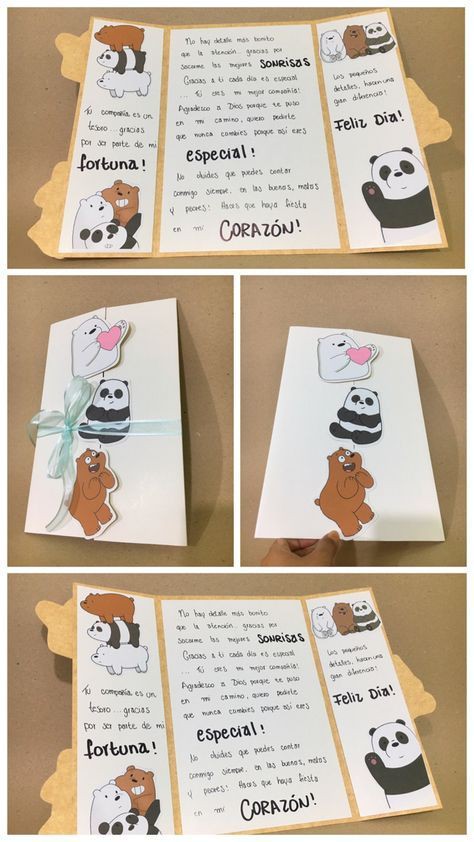 Tú compañía es un
tesoro ...gracias
por ser parte de mi
fortuna!
No hay detalle más bonito
que la atención... gracias por
sacarme las mejores SONRISAS
Gracias a ti cada día es especial
... Tú eres mi mejor compañía!
Agradesco a Dios porque te puso
en mi camino, quiero pedirte
que nunca cambies porque así eres
especial!
No olvides que puedes contar
conmigo siempre, en las buenas, malas
y peores! Haces que haya fiesta
en mi CORAZÓN!
Los pequeños
detalles, hacen una
gran diferencia!
Feliz Día!
Tú compañía es un
tesoro ...gracias
por ser parte de mi
fortuna!
No hay detalle más bonito
que la atención... gracias por
sacarme las mejores SONRISAS
Gracias a ti cada día es especial
... Tú eres mi mejor compañía!
Agradesco a Dios porque te puso
en mi camino, quiero pedirte
que nunca cambies porque así eres
especial!
No olvides que puedes contar
conmigo siempre, en las buenas, malas
y peores! Haces que haya fiesta
en mi CORAZÓN!
Los pequeños
detalles, hacen una
gran diferencia!
Feliz Día!